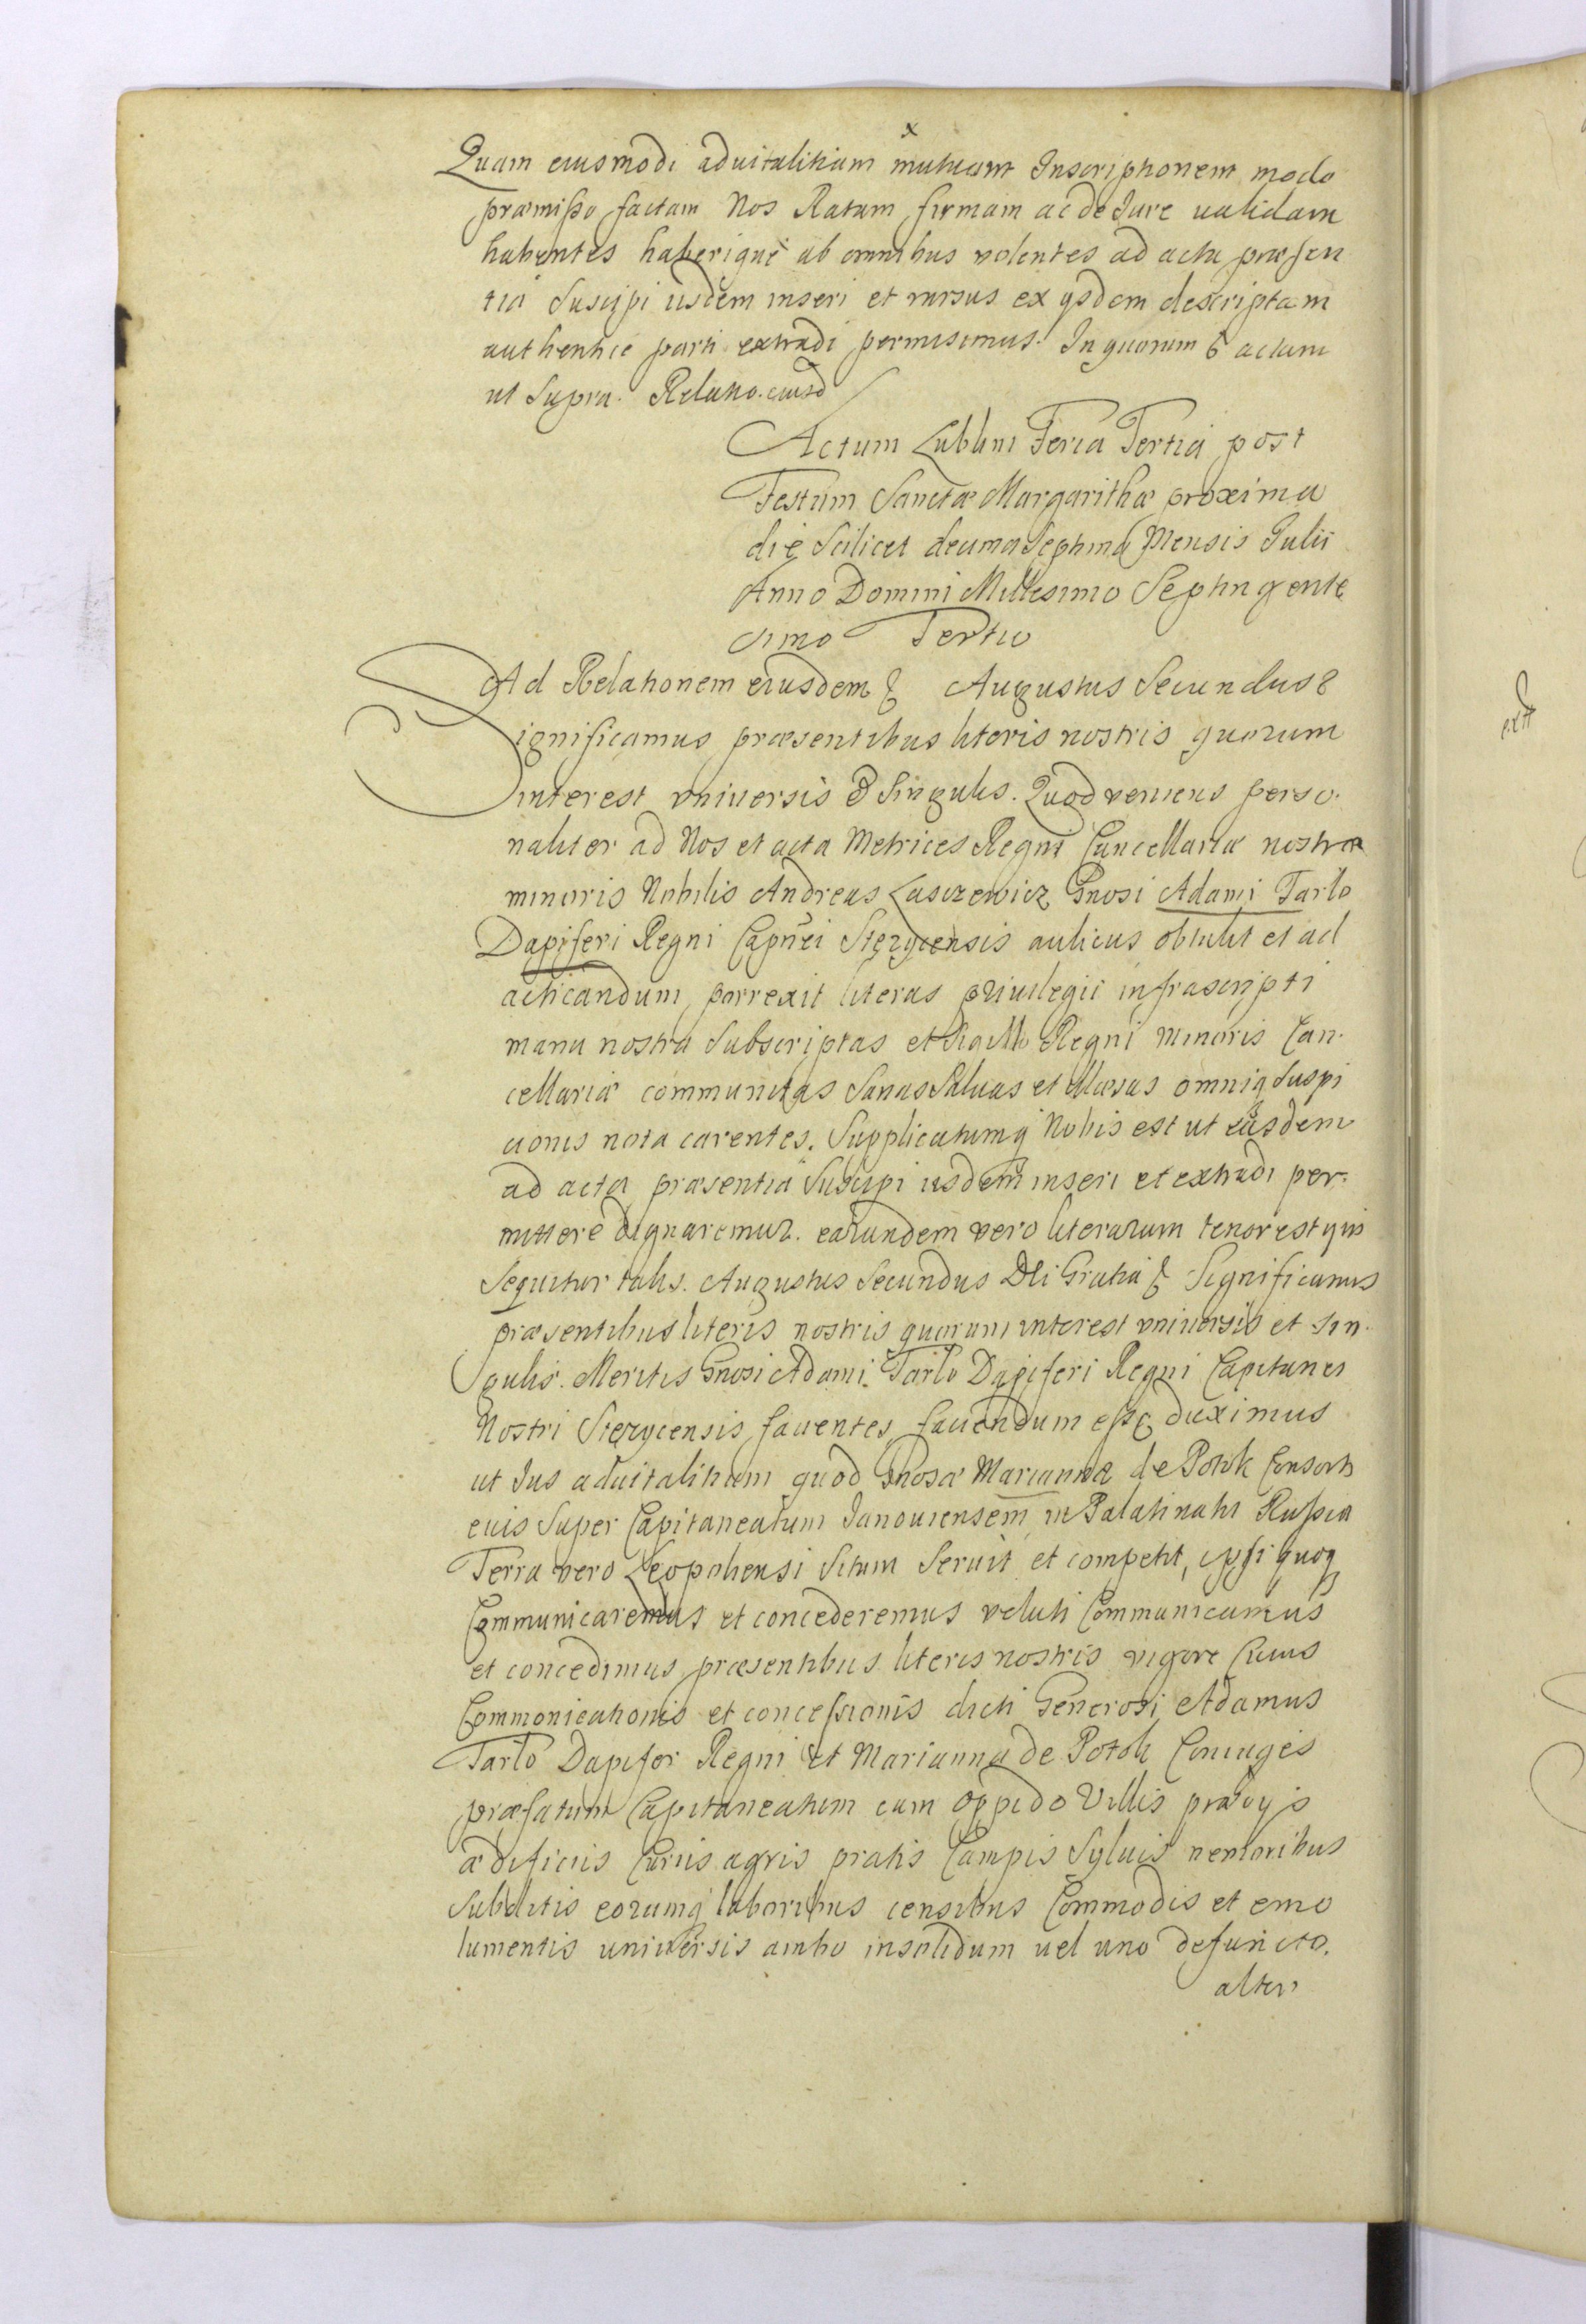 x
Quam eiusmodi aduitalitiam mutuam Inscriptionem modo
præmisso factam Nos Ratam firmam ac de Jure ualidam
habentes haberique ab omnibus volentes ad acta præsen
tia Suscipi iisdem inseri et rursus ex ysdem descriptam
authentice parti extradi permisimus. In quorum & actum
ut Supra. Relatio. eiusd
Actum Lublini Feria Tertia post
Festum Sanctæ Margarithæ proxima
die Scilicet decima Septima Mensis Julii
Anno Domini Millesimo Septingente
simo Tertio
Ad Relationem eiusdem & Augustus Secundus &
Significamus præsentibus literis nostris quorum
interest vniuersis & Singulis. Quod veniens perso.
naliter ad Nos et acta Metrices Regni Cancellariæ nostræ
minoris Nobilis Andreas Lasczewicz Gnosi Adami Tarlo
Dapiferi Regni Capnei Stęzycensis aulicus obtulit et ad
acticandum porrexit literas priuilegii infrascripti
manu nostra Subscriptas et Sigillo Regni minoris Can.
cellariæ communitas Sanas Saluas et illæsas omniq Suspi
cionis nota carentes. Supplicatumq Nobis est ut easdem
ad acta præsentia Suscipi iisdem inseri et extradi per.
mittere dignaremur. earundem vero literarum tenor est qui
Sequitur talis. Augustus Secundus Dei Gratia & Significamus
præsentibus literis nostris quorum interest vniuersis et Sin.
gulis. Meritis Gnosi Adami Tarlo Dapiferi Regni Capitanei
Nostri Stęzycensis fauentes fauendum esse duximus
ut Jus aduitalitium quod Gnosæ Mariannæ de Potok Consorti
eius Super Capitaneatum Janouiensem in Palatinatu Russiæ
Terra vero Leopoliensi Situm Seruit et competit, ipsi quoq
Communicaremus et concederemus veluti Communicamus
et concedimus præsentibus literis nostris vigore Cuius
Commonicationis et concessionis dicti Generosi Adamus
Tarlo Dapifer Regni et Marianna de Potok Coniuges
præfatum Capitaneatum cum oppido Villis prædys
ædificiis Curiis agris pratis Campis Syluis nemoribus
Subditis eorumq laboribus censibus Commodis et emo
lumentis uniuersis ambo insolidum uel uno defuncto.
alter